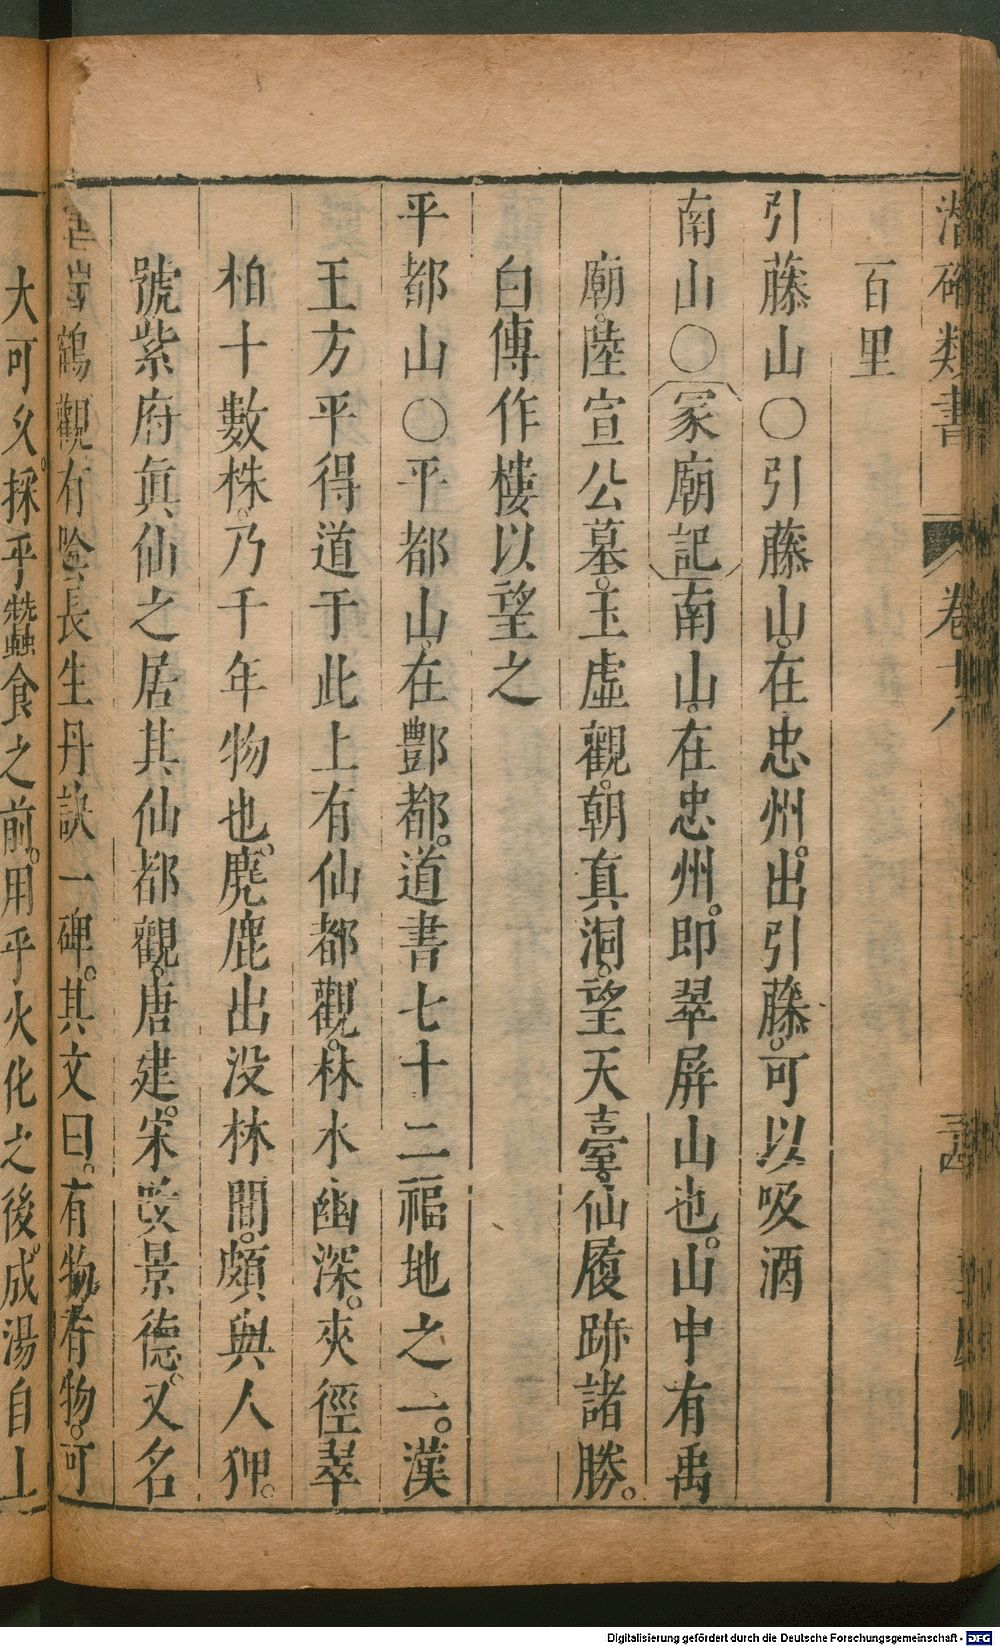 潛確類書 卷
百里
引藤山〇引藤山。在忠州。出引藤。可以吸酒
南山〇〔冢廟記〕南山。在忠州。即翠屏山也。山中有禹
廟。陸宣公墓。玉虛觀。朝真洞。望天臺。仙履跡諸勝。
白傳作樓以望之
平都山〇平都山。在酆都。道書七十二福地之一。漢
王方平得道于此上有仙都觀。林水幽深。夾徑翠
柏十數株。乃千年物也。麂鹿出沒林間。頗與人狎。
號紫府眞仙之居其仙都觀。唐建。宋改景德。又名
鶴觀有陰長生丹訣一碑。其文曰。有物。有物。可
大可久。採乎蠶食之前。用乎火化之後。成湯自上
Digitalisierung gefördert durch die Deutsche Forschungsgemeinschaft - DFG